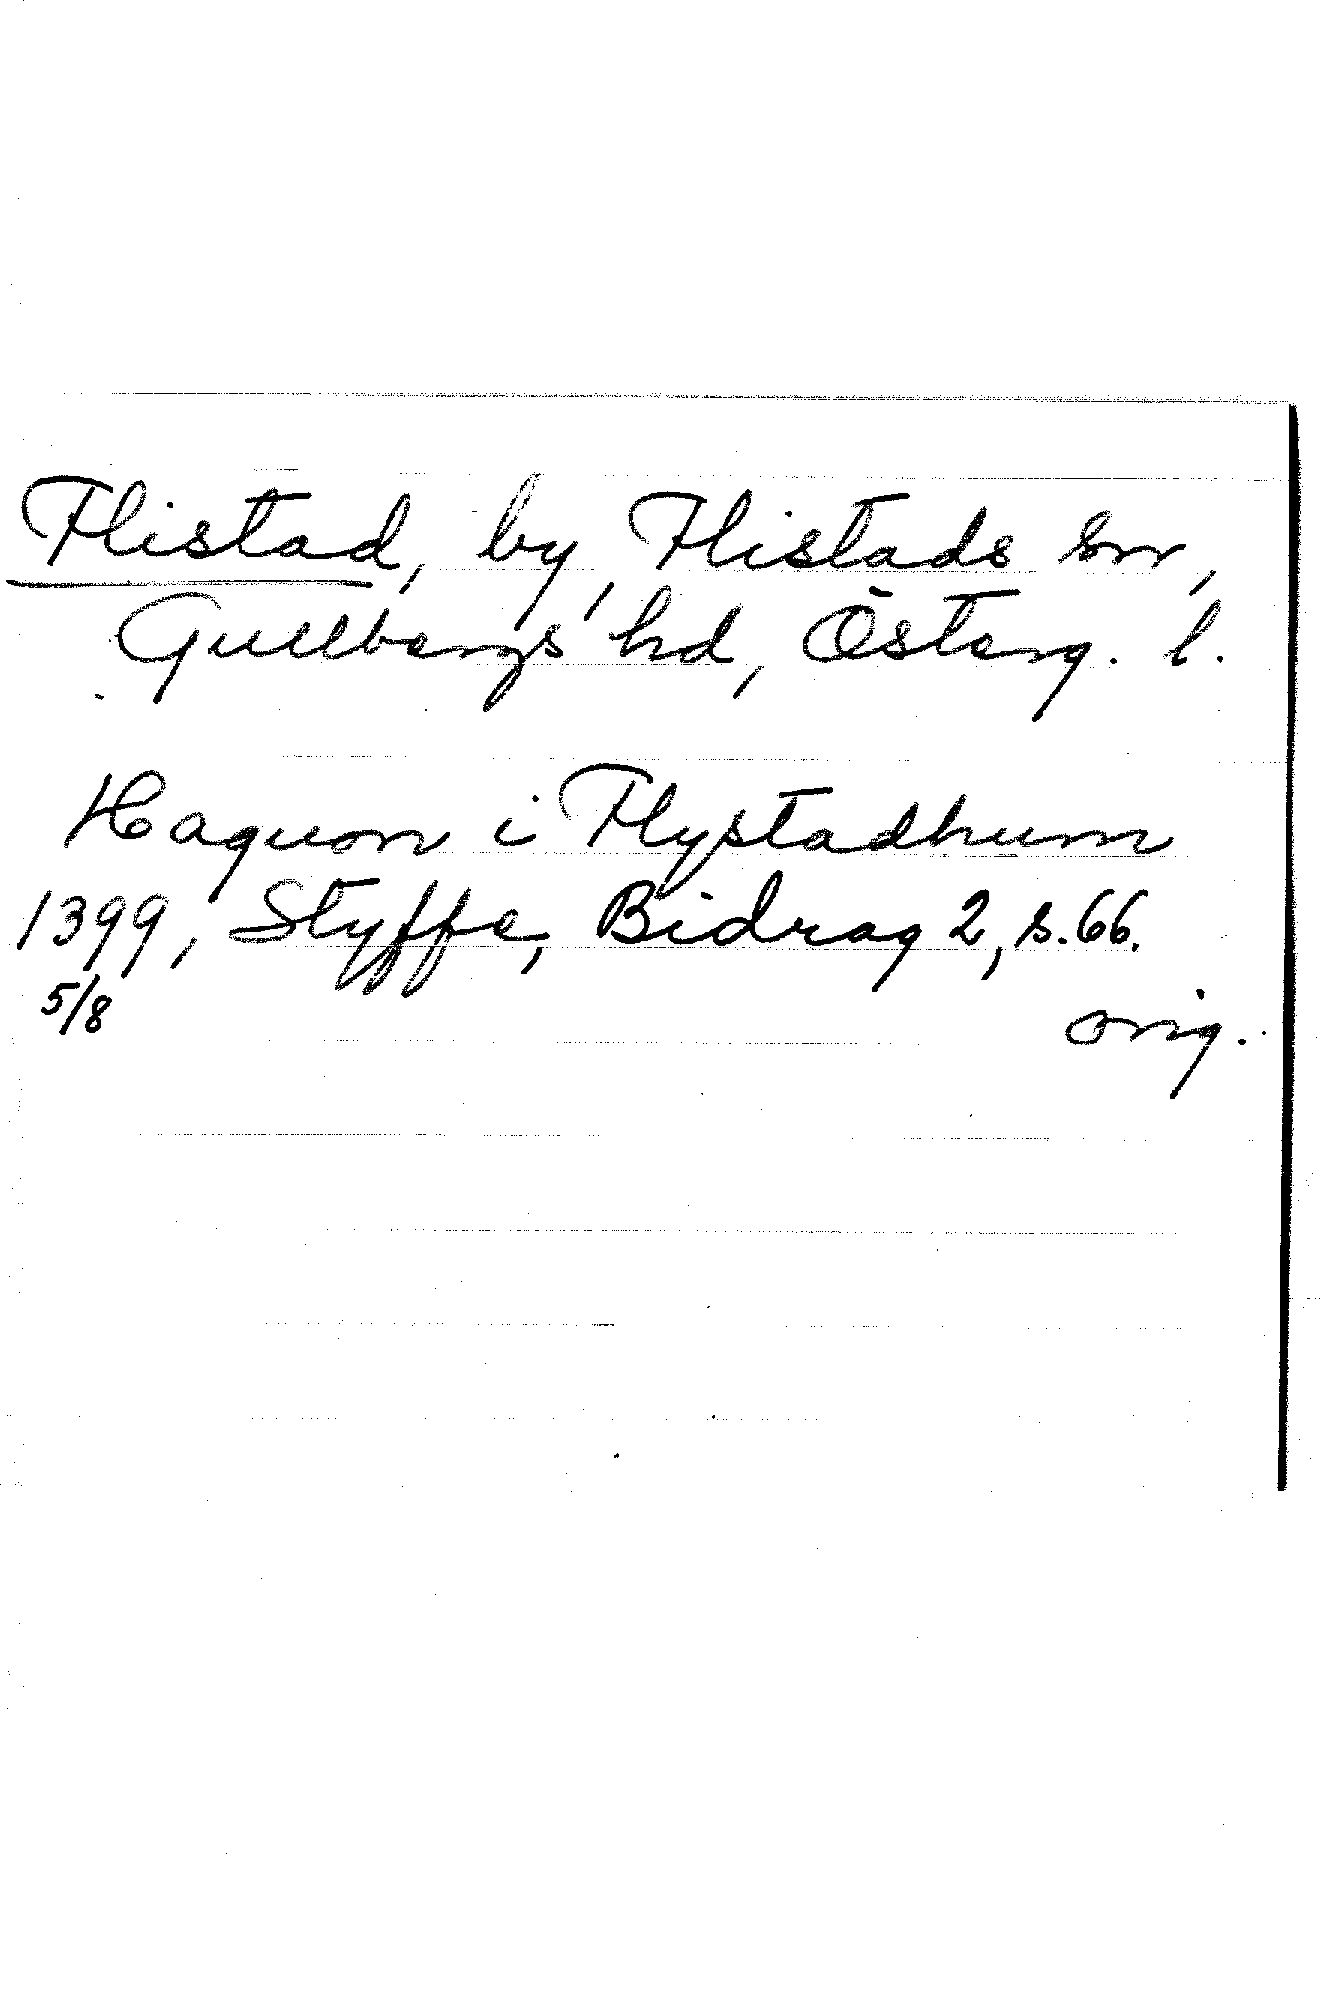 Flistad, by, Flistads sn,
Gullbergs hd, Österg. l.
Haquon i Flystadhum
1399, Styffe, Bidrag 2, s. 66.
5/8
orig.